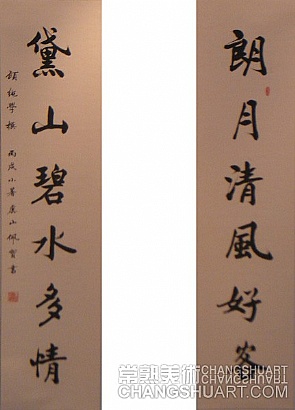 朗月清風好客
黛山碧水多情
顧純學撰 丙戌小暑虞山佩賢書
常熟美術 CHANGSHUART
CHANGSHUART.COM